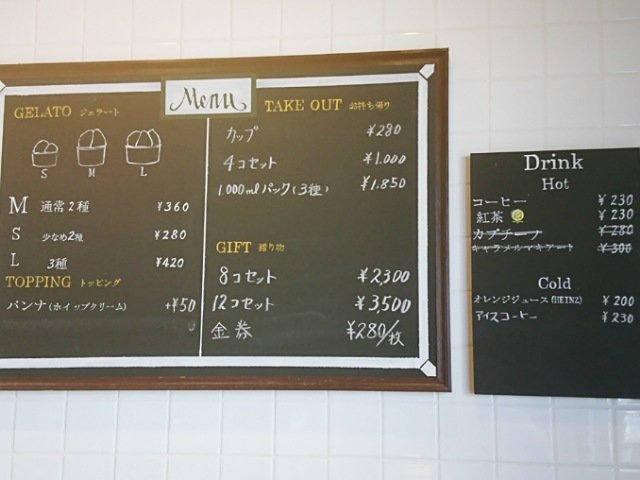 Menu
GELATO ジェラート
S M L
M 通常2種 ¥360
S 少なめ2種 ¥280
L 3種 ¥420
TOPPING トッピング
パンナ(ホイップクリーム) +¥50
TAKE OUT お持ち帰り
カップ ¥280
4コセット ¥1.000
1.000mlパック(3種) ¥1.850
GIFT 贈り物
8コセット ¥2,300
12コセット ¥3,500
金券 ¥280/枚
Drink
Hot
コーヒー ¥230
紅茶 ¥230
カプチーノ ¥280
キャラメルマキアート ¥300
Cold
オレンジジュース(HEINZ) ¥200
アイスコーヒー ¥230